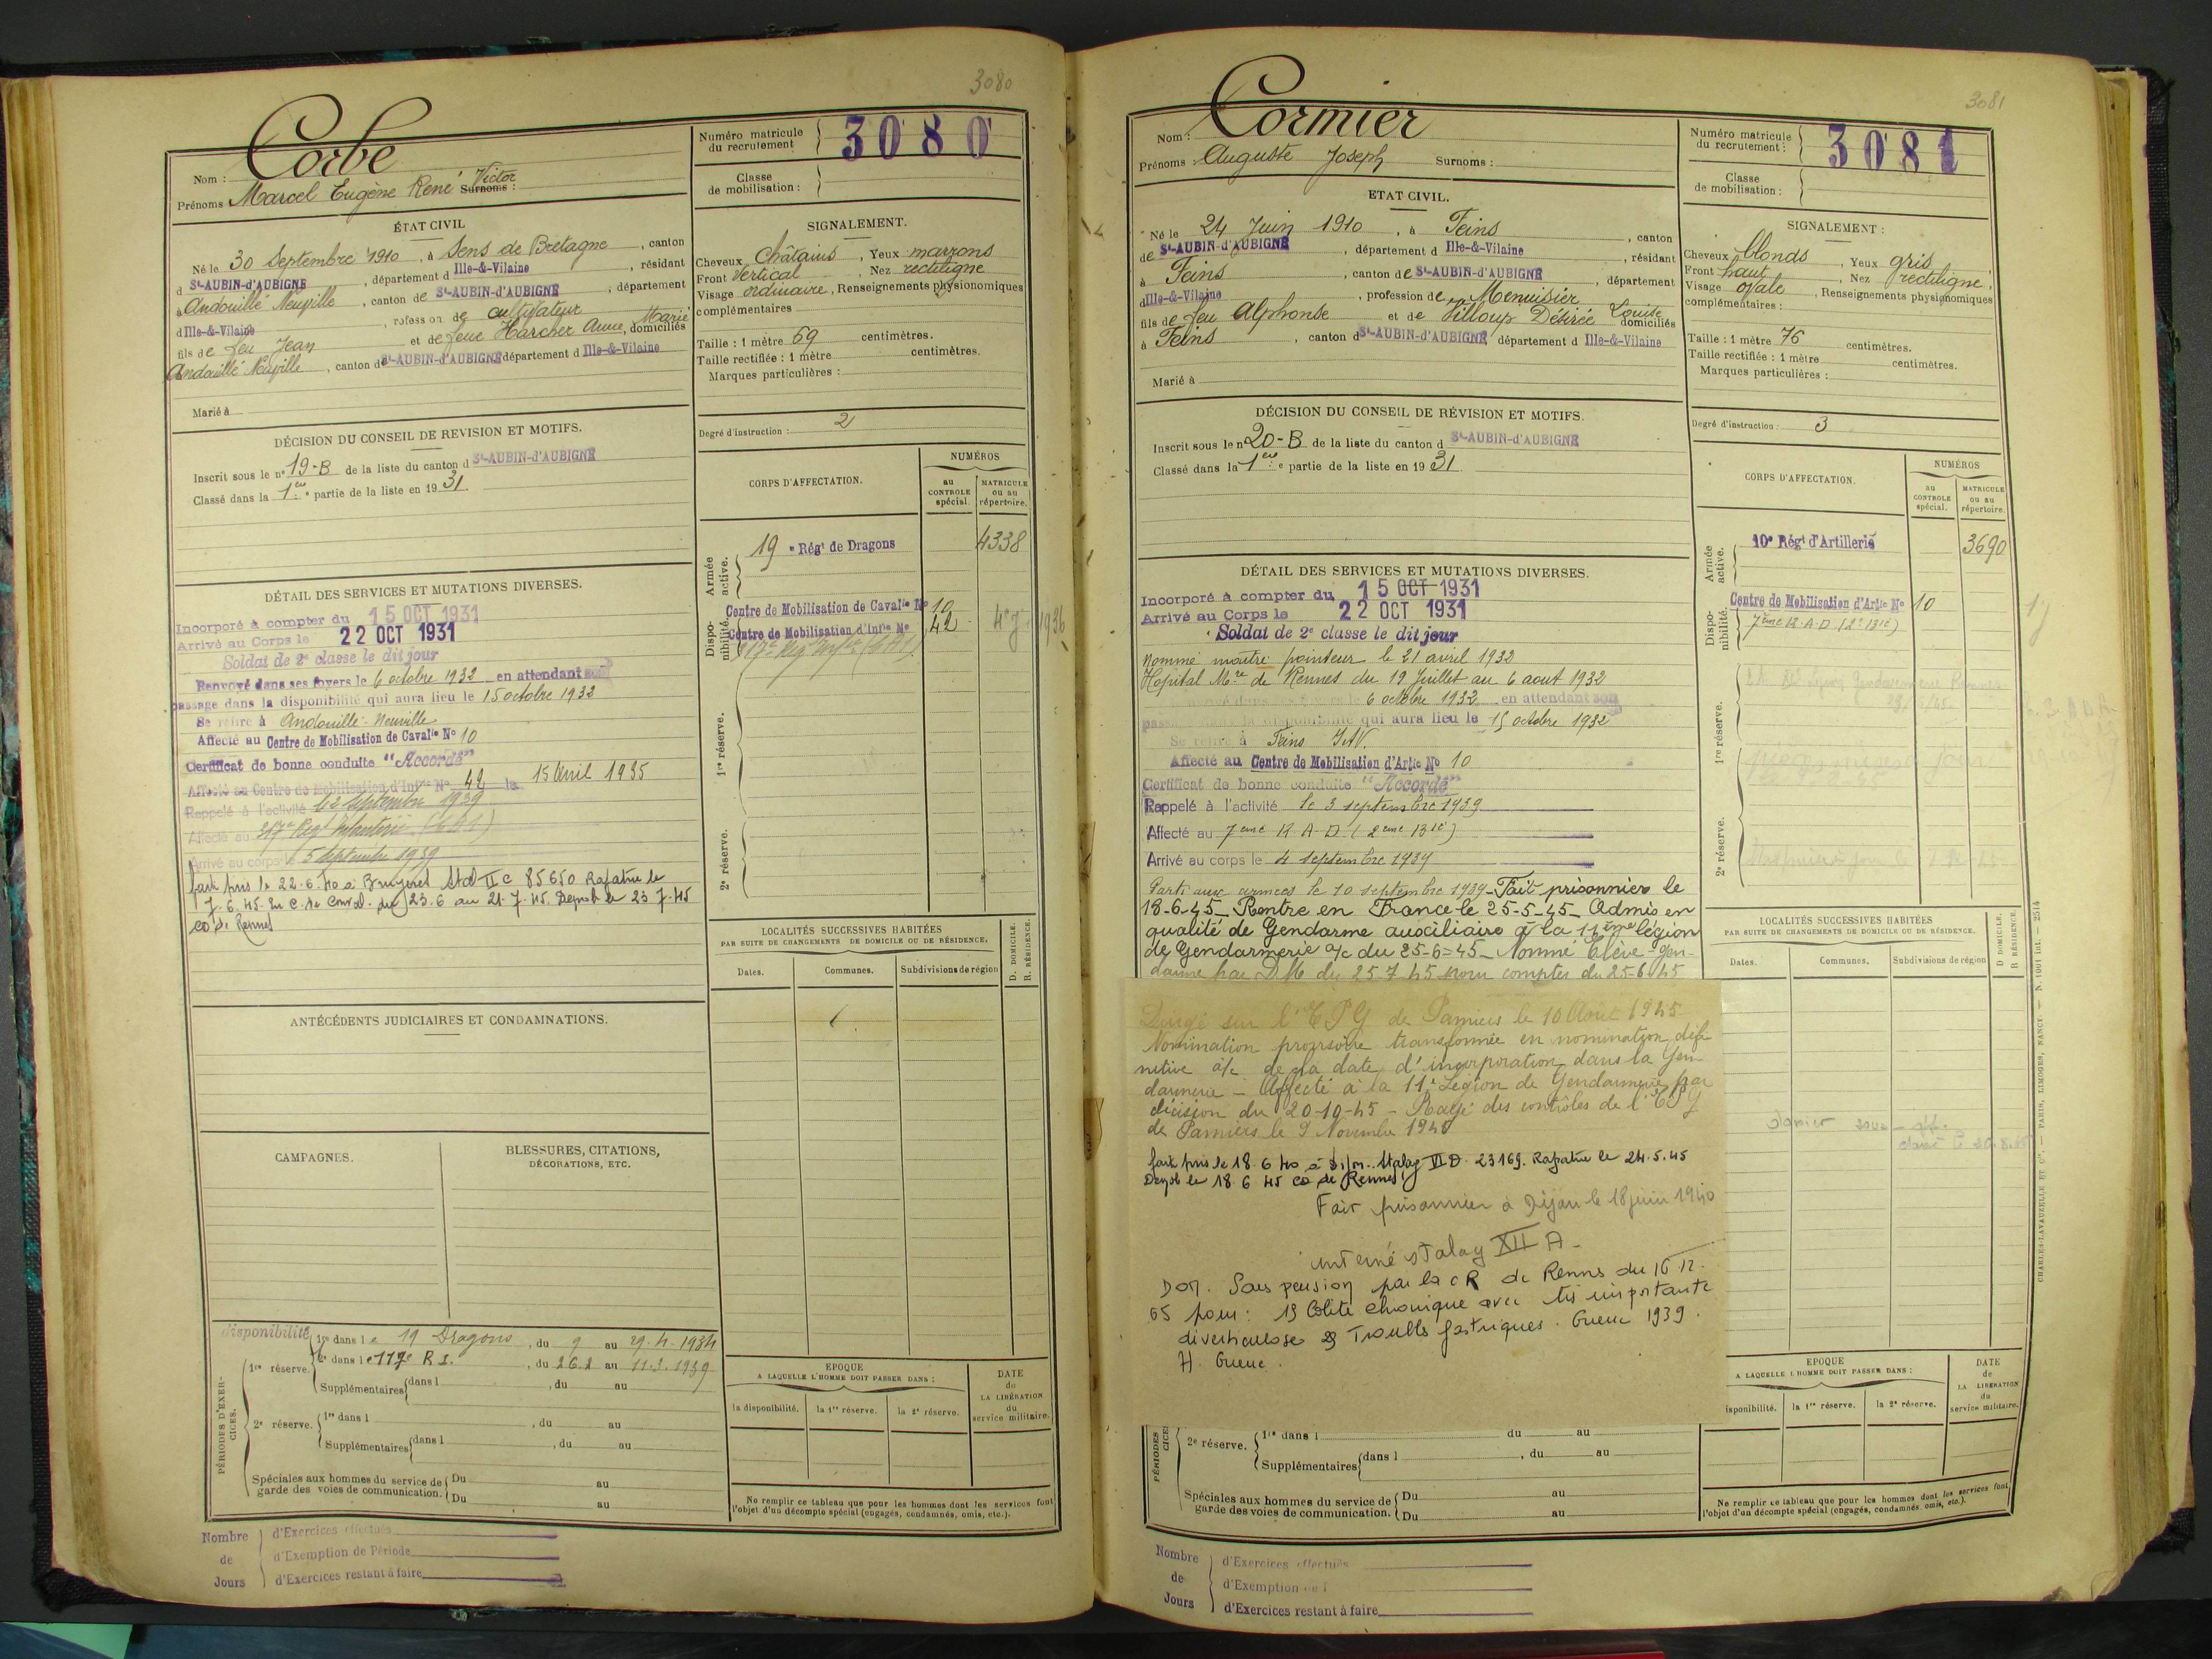 3080
Nom : Corbe
Prénoms Marcel Eugène René Victor Surnoms :
Numéro matricule du recrutement 3080
Classe de mobilisation :
ÉTAT CIVIL
Né le 30 Septembre 1910, à Sens de Bretagne, canton
d St-AUBIN-d'AUBIGNÉ, département d Ille-&-Vilaine, résidant
à Andouillé Neuville, canton de St-AUBIN-d'AUBIGNÉ, département
d Ille-&-Vilaine, profession de cultivateur
fils de feu Jean et de feue Harcher Anne, Marie domiciliés
Andouillé Neuville, canton d St-AUBIN-d'AUBIGNÉ département d Ille-&-Vilaine
Marié à
SIGNALEMENT.
Cheveux Châtains, Yeux marrons
Front Vertical, Nez rectiligne
Visage ordinaire, Renseignements physionomiques
complémentaires
Taille : 1 mètre 69 centimètres.
Taille rectifiée : 1 mètre centimètres.
Marques particulières :
Degré d'instruction : 2
DÉCISION DU CONSEIL DE REVISION ET MOTIFS.
Inscrit sous le n° 19-B de la liste du canton d St-AUBIN-d'AUBIGNÉ
Classé dans la 1ère partie de la liste en 1931.
CORPS D'AFFECTATION.
NUMÉROS
au CONTROLE spécial.
MATRICULE ou au répertoire.
Armée active.
19e Régt de Dragons 4338
Dispo-nibilité.
Centre de Mobilisation de Cavalie No 10
Centre de Mobilisation d'Infie No 42
1re réserve.
2e réserve.
DÉTAIL DES SERVICES ET MUTATIONS DIVERSES.
Incorporé à compter du 15 OCT 1931
Arrivé au Corps le 22 OCT 1931
Soldat de 2e classe le dit jour
Renvoyé dans ses foyers le 6 octobre 1932 en attendant son
passage dans la disponibilité qui aura lieu le 15 octobre 1932
Se retire à Andouillé-Neuville
Affecté au Centre de Mobilisation de Cavalie No 10
Certificat de bonne conduite "Accordé"
Affecté au Centre de Mobilisation d'Infie No 42 le 15 Avril 1935
Rappelé à l'activité le 2 septembre 1939
Affecté au 317e Régt Infanterie
Arrivé au corps le 5 septembre 1939
fait pris le 22.6.40 à Bruyeres Stal II C 85650 Rapatrié le
7.6.45. En C. de Conval. du 23.6 au 21.7.45. Démob le 23.7.45
co de Rennes
ANTÉCÉDENTS JUDICIAIRES ET CONDAMNATIONS.
CAMPAGNES.
BLESSURES, CITATIONS, DÉCORATIONS, ETC.
LOCALITÉS SUCCESSIVES HABITÉES
PAR SUITE DE CHANGEMENTS DE DOMICILE OU DE RÉSIDENCE.
D. DOMICILE.
R. RÉSIDENCE.
Dates. Communes. Subdivisions de région
PÉRIODES D'EXER-CICES.
disponibilité
1re réserve.
1re dans le 19 Dragons, du 9 au 29.4.1934
2e dans le 117e R I., du 26.2 au 11.3.1939
Supplémentaires dans l , du au
2e réserve.
1re dans l , du au
Supplémentaires dans l , du au
Spéciales aux hommes du service de garde des voies de communication. Du au
Du au
EPOQUE
A LAQUELLE L'HOMME DOIT PASSER DANS :
la disponibilité. la 1re réserve. la 2e réserve.
DATE de LA LIBÉRATION du service militaire.
Ne remplir ce tableau que pour les hommes dont les services font
l'objet d'un décompte spécial (engagés, condamnés, omis, etc.).
Nombre de Jours
d'Exercices effectués
d'Exemption de Période
d'Exercices restant à faire
3081
Nom : Cormier
Prénoms : Auguste Joseph Surnoms :
Numéro matricule du recrutement : 3081
Classe de mobilisation :
ETAT CIVIL.
Né le 24 Juin 1910, à Feins, canton
de St-AUBIN-d'AUBIGNÉ, département d Ille-&-Vilaine, résidant
à Feins, canton de St-AUBIN-d'AUBIGNÉ, département
d Ille-&-Vilaine, profession de Menuisier
fils de feu Alphonse et de Filloup Désirée Louise domiciliés
à Feins, canton d St-AUBIN-d'AUBIGNÉ département d Ille-&-Vilaine
Marié à
SIGNALEMENT :
Cheveux blonds, Yeux gris
Front haut, Nez rectiligne,
Visage ovale, Renseignements physionomiques
complémentaires :
Taille : 1 mètre 76 centimètres.
Taille rectifiée : 1 mètre centimètres.
Marques particulières :
Degré d'instruction : 3
DÉCISION DU CONSEIL DE RÉVISION ET MOTIFS.
Inscrit sous le n° 20-B de la liste du canton d St-AUBIN-d'AUBIGNÉ
Classé dans la 1ère partie de la liste en 1931.
CORPS D'AFFECTATION.
NUMÉROS
au CONTROLE spécial.
MATRICULE ou au répertoire.
Armée active.
10e Régt d'Artillerie 3690
Dispo-nibilité.
Centre de Mobilisation d'Artie No 10
7ème R.A.D (2e Bie)
1re réserve.
2e réserve.
DÉTAIL DES SERVICES ET MUTATIONS DIVERSES.
Incorporé à compter du 15 OCT 1931
Arrivé au Corps le 22 OCT 1931
Soldat de 2e classe le dit jour
Nommé maître pointeur le 21 avril 1932
Hôpital Mre de Rennes du 19 Juillet au 6 aout 1932
le 6 octobre 1932 en attendant son
passage dans la disponibilité qui aura lieu le 15 octobre 1932
Se retire à Feins I&V.
Affecté au Centre de Mobilisation d'Artie No 10
Certificat de bonne conduite "Accordé"
Rappelé à l'activité le 3 septembre 1939
Affecté au 7ème R.A.D (2ème Bie)
Arrivé au corps le 4 septembre 1939
Parti aux armées le 10 septembre 1939 - Fait prisonnier le
18-6-45 _ Rentre en France le 25-5-45 _ Admis en
qualité de Gendarme auxiliaire à la 11ème légion
de Gendarmerie a/c du 25-6-45 _ Nommé Elève-gen-
darme par DM du 25.7.45 pour compter du 25-6-45
Dirigé sur l'EPG de Pamiers le 10 Août 1945
Nomination provisoire transformée en nomination défi-
nitive a/c de la date d'incorporation dans la Gen-
darmerie - Affecté à la 11e Légion de Gendarmerie par
décision du 20-10-45 - Rayé des contrôles de l'EPG
de Pamiers le 9 Novembre 1945
fait pris le 18.6.40 à Dijon. Stalag VI D. 23169. Rapatrié le 24.5.45
Démob le 18.6.45 co de Rennes
Fait prisonnier à Dijon le 18 juin 1940
interné stalag XII A -
DOM. Sans pension par la CR de Rennes du 16.12.
65 pour : 1) Colite chronique avec très importante
diverticulose 2) Troubles gastriques. Guerre 1939.
H. Guerre.
LOCALITÉS SUCCESSIVES HABITÉES
PAR SUITE DE CHANGEMENTS DE DOMICILE OU DE RÉSIDENCE.
D. DOMICILE.
R. RÉSIDENCE.
Dates. Communes. Subdivisions de région
PÉRIODES
2e réserve.
1re dans l du au
Supplémentaires dans l , du au
Spéciales aux hommes du service de garde des voies de communication. Du au
Du au
EPOQUE
A LAQUELLE L'HOMME DOIT PASSER DANS :
isponibilité. la 1re réserve. la 2e réserve.
DATE de LA LIBÉRATION du service militaire.
Ne remplir ce tableau que pour les hommes dont les services font
l'objet d'un décompte spécial (engagés, condamnés, omis, etc.).
Nombre de Jours
d'Exercices effectués
d'Exemption
d'Exercices restant à faire
CHARLES-LAVAUZELLE ET Cie. — PARIS, LIMOGES, NANCY — N. 1001 int. — 2514